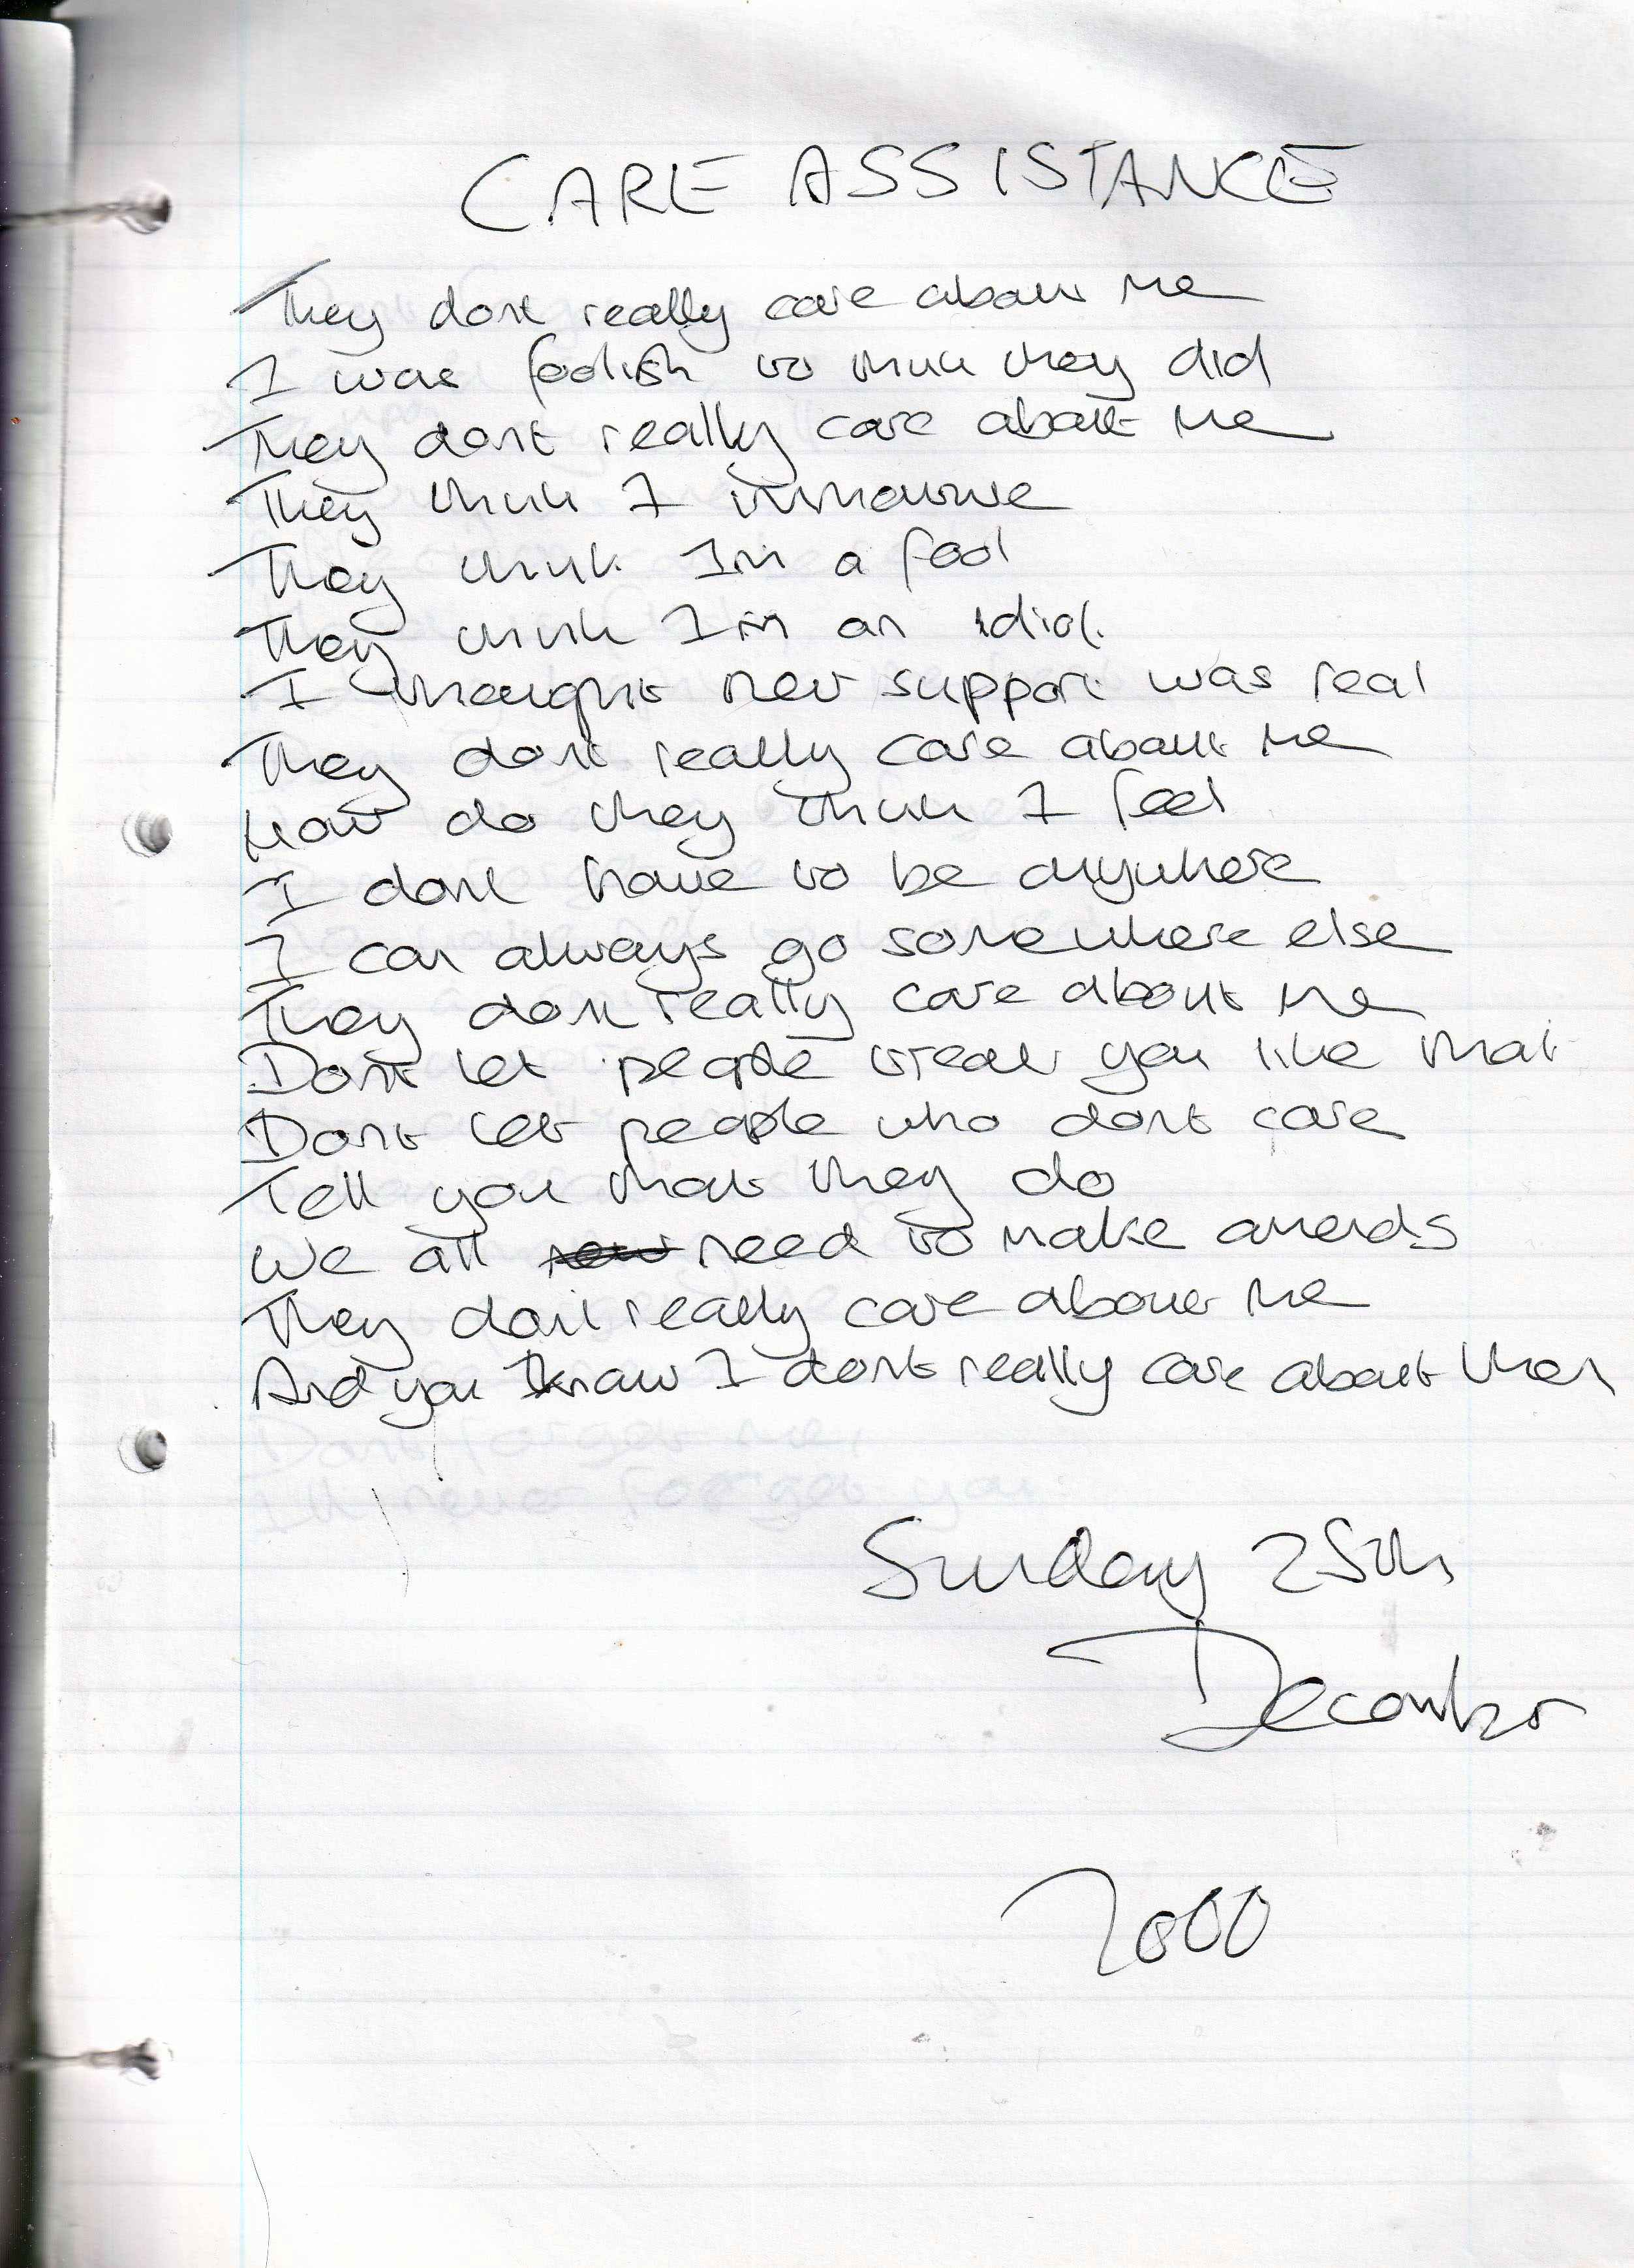 CARE ASSISTANCE
They dont really care about me
I was foolish to think they did
They dont really care about me
They think I immature
They think Im a fool
They think Im an idiot.
I thought their support was real
They dont really care about me
How do they think I feel
I dont have to be anywhere
I can always go somewhere else
They dont really care about me
Dont let people treat you like that
Dont let people who dont care
Tell you that they do
We all need to make amends
They dont really care about me
And you know I dont really care about them
Dont forget me,
I'll never forget you.
Sunday 25th
December
2000